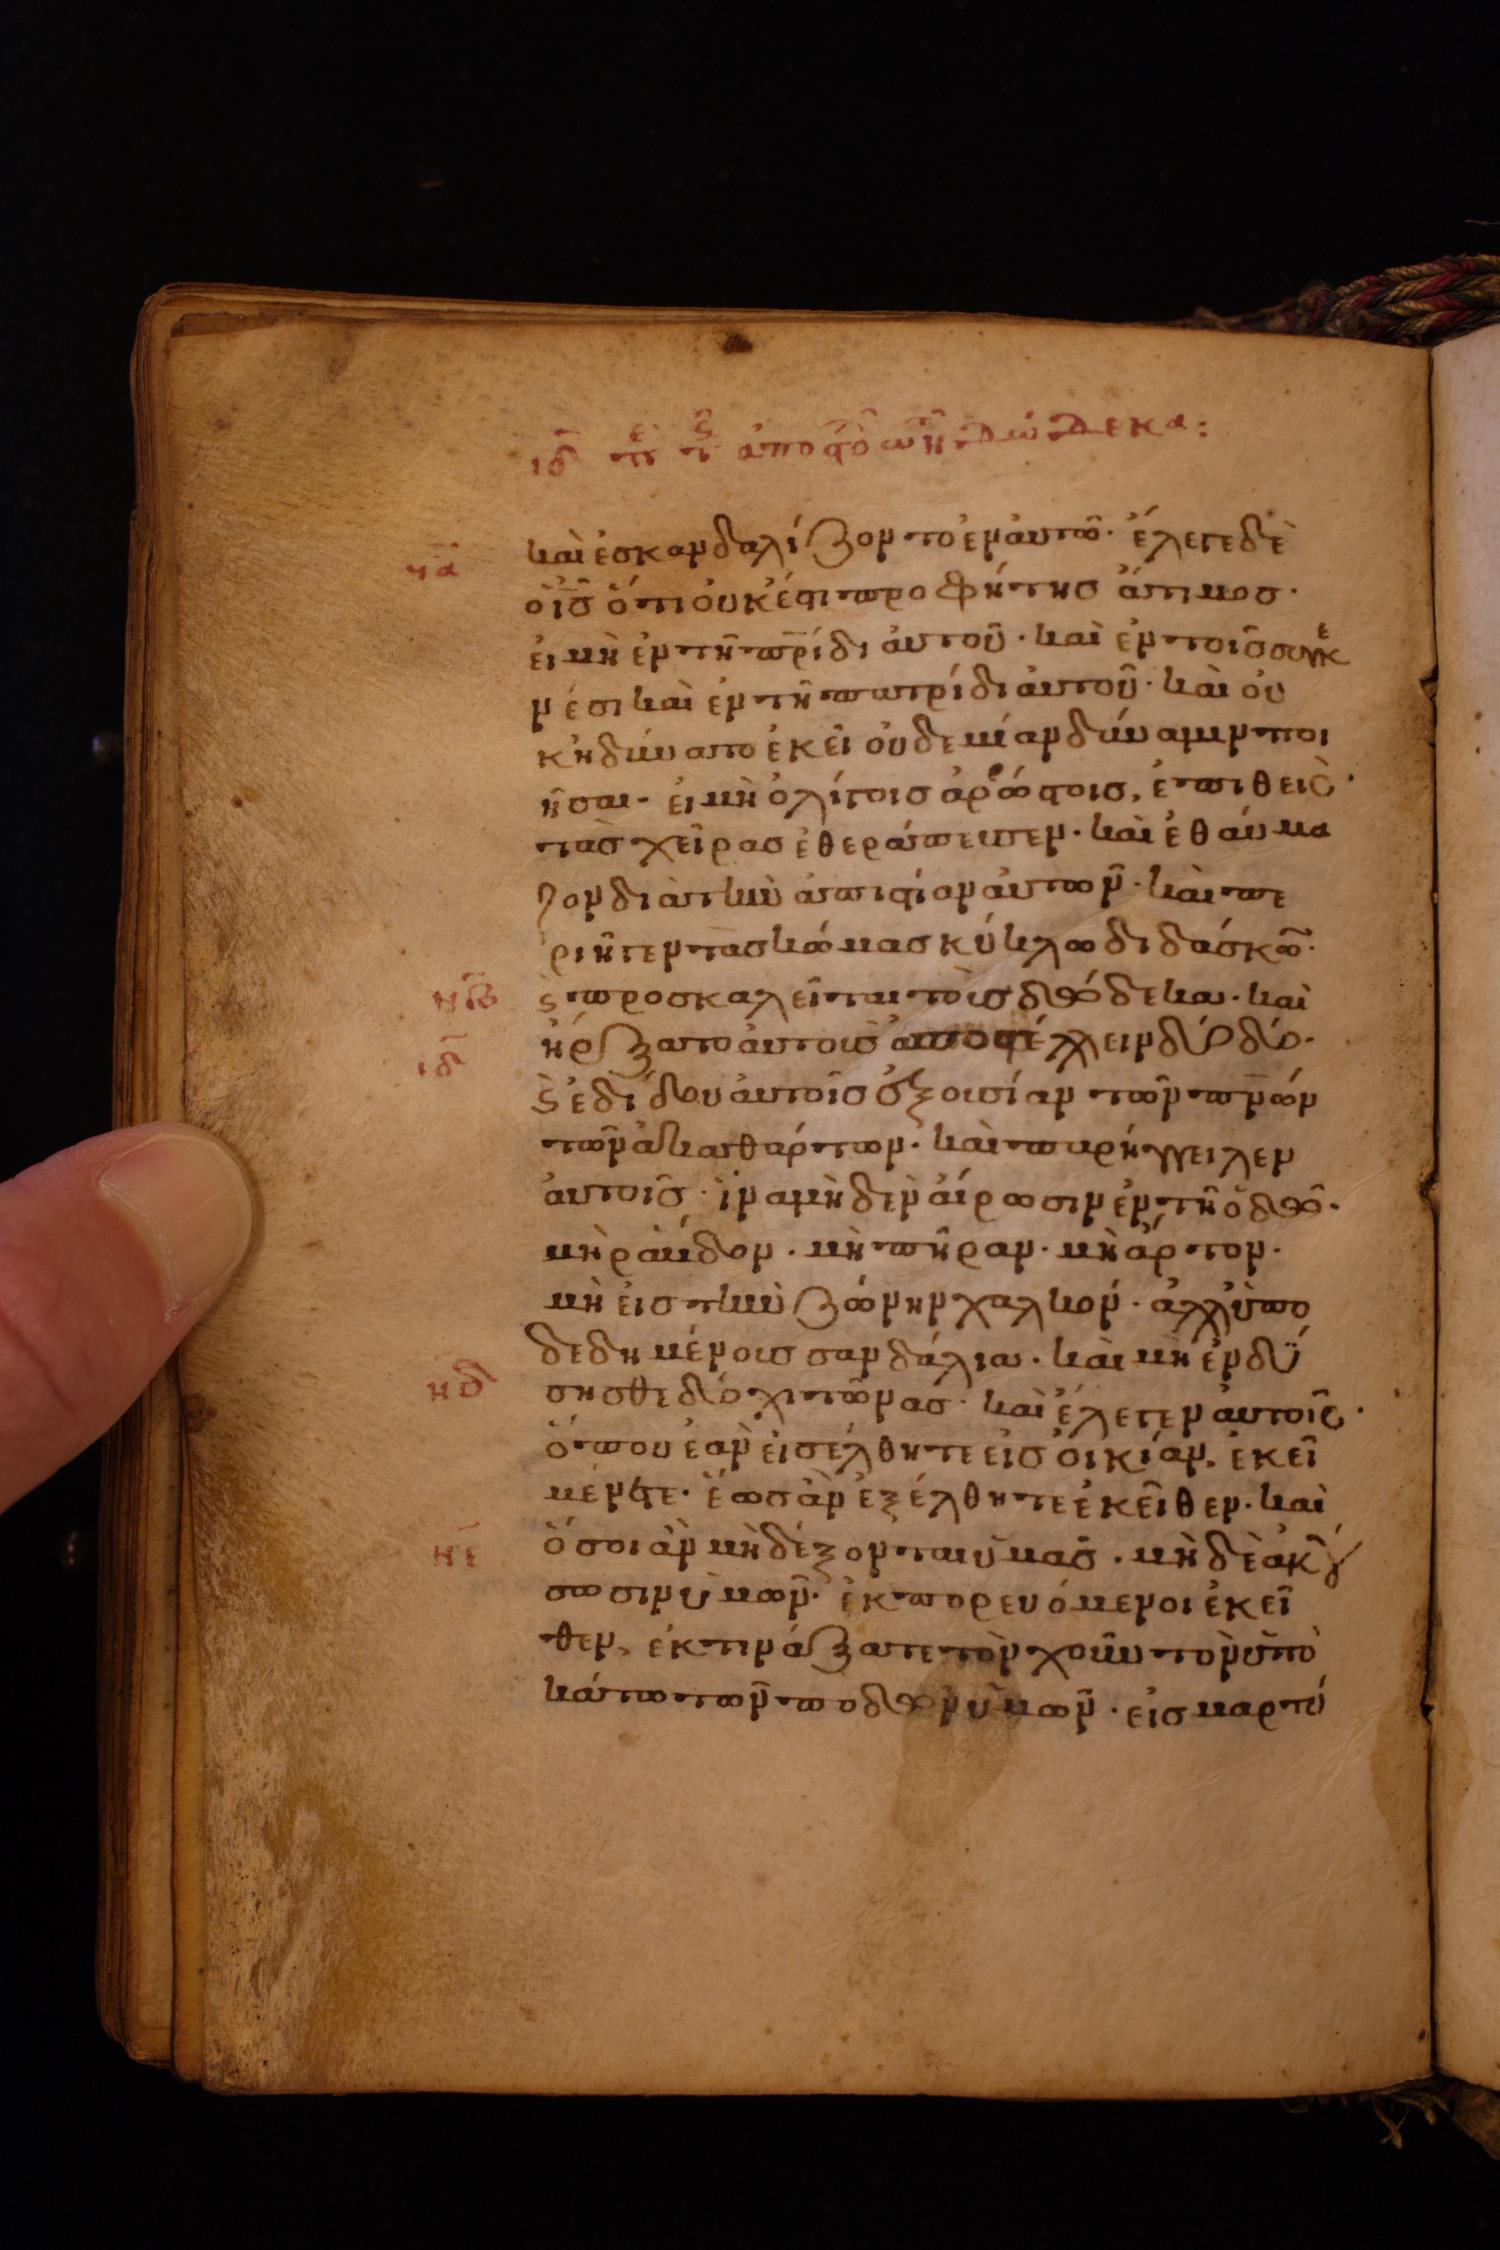 ιδ πε τς αποστο των δώδεκα:
να
καὶ ἐσκανδαλίζοντο ἐν ἀυτῶ· ἔλεγε δὲ
ὁ ἰς ὅτι ὀυκ ἔστι προφήτης ἄτιμος·
ἐι μὴ ἐν τῆ πρίδι ἀυτοῦ· καὶ ἐν τοῖς συγγε
νέσι καὶ ἐν τῆ πατρίδι ἀυτοῦ· καὶ ὀυ
κ ἠδύνατο ἐκεῖ ὀυδεμίαν δύναμιν ποι
ῆσαι· ἐι μὴ ὀλίγοις ἀρώστοις, ἐπιθεὶς·
τὰς χεῖρας ἐθεράπευσεν· καὶ ἐθάυμα
ζον διὰ τὴν ἀπιστίαν ἀυτῶν· καὶ πε
ριῆγεν τὰς κώμας κύκλω διδάσκω̅·
νβ
ϛ προσκαλεῖται τοὺς δώδεκα· καὶ
ιδ
ἤρξατο ἀυτοὺς ἀποστέλλειν δύο δύο·
ϛ ἐδίδου ἀυτοῖς ἐξουσίαν τῶν πνῶν
τῶν ἀκαθάρτων· καὶ παρήγγειλεν
ἀυτοῖς· ἵνα μηδὲν ἄιρωσιν ἐν τῆ ὁδῶ·
μὴ ράβδον· μὴ πῆραν· μὴ ἄρτον·
μὴ ἐις τὴν ζώνην χαλκόν· ἀλλ' ὑπο
δεδημένους σανδάλια· καὶ μὴ ἐνδύ
νδ
σησθε δύο χιτῶνας· καὶ ἔλεγεν ἀυτοῖς·
ὅπου ἐὰν ἐισέλθητε ἐις ὀικίαν, ἐκεῖ
μένετε· ἕως ἂν ἐξέλθητε ἐκεῖθεν· καὶ
νε
ὅσοι ἂν μὴ δέξονται ὑμᾶς· μηδὲ ἀκού
σωσιν ὑμῶν· ἐκπορευόμενοι ἐκεῖ
θεν, ἐκτινάξατε τὸν χοῦν τὸν ὑπὸ
κάτω τῶν ποδῶν ὑμῶν· ἐις μαρτύ